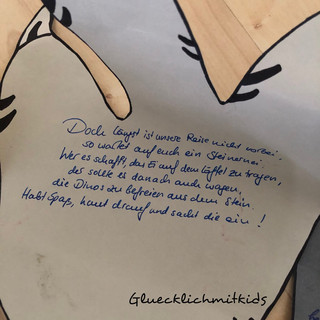 Doch längst ist unsere Reise nicht vorbei,
so wartet auf euch ein Steinernei.
Wer es schafft, das Ei auf dem Löffel zu tragen,
der sollte es danach auch wagen,
die Dinos zu befreien aus dem Stein.
Habt Spaß, haut drauf und sackt die ein!
Gluecklichmitkids